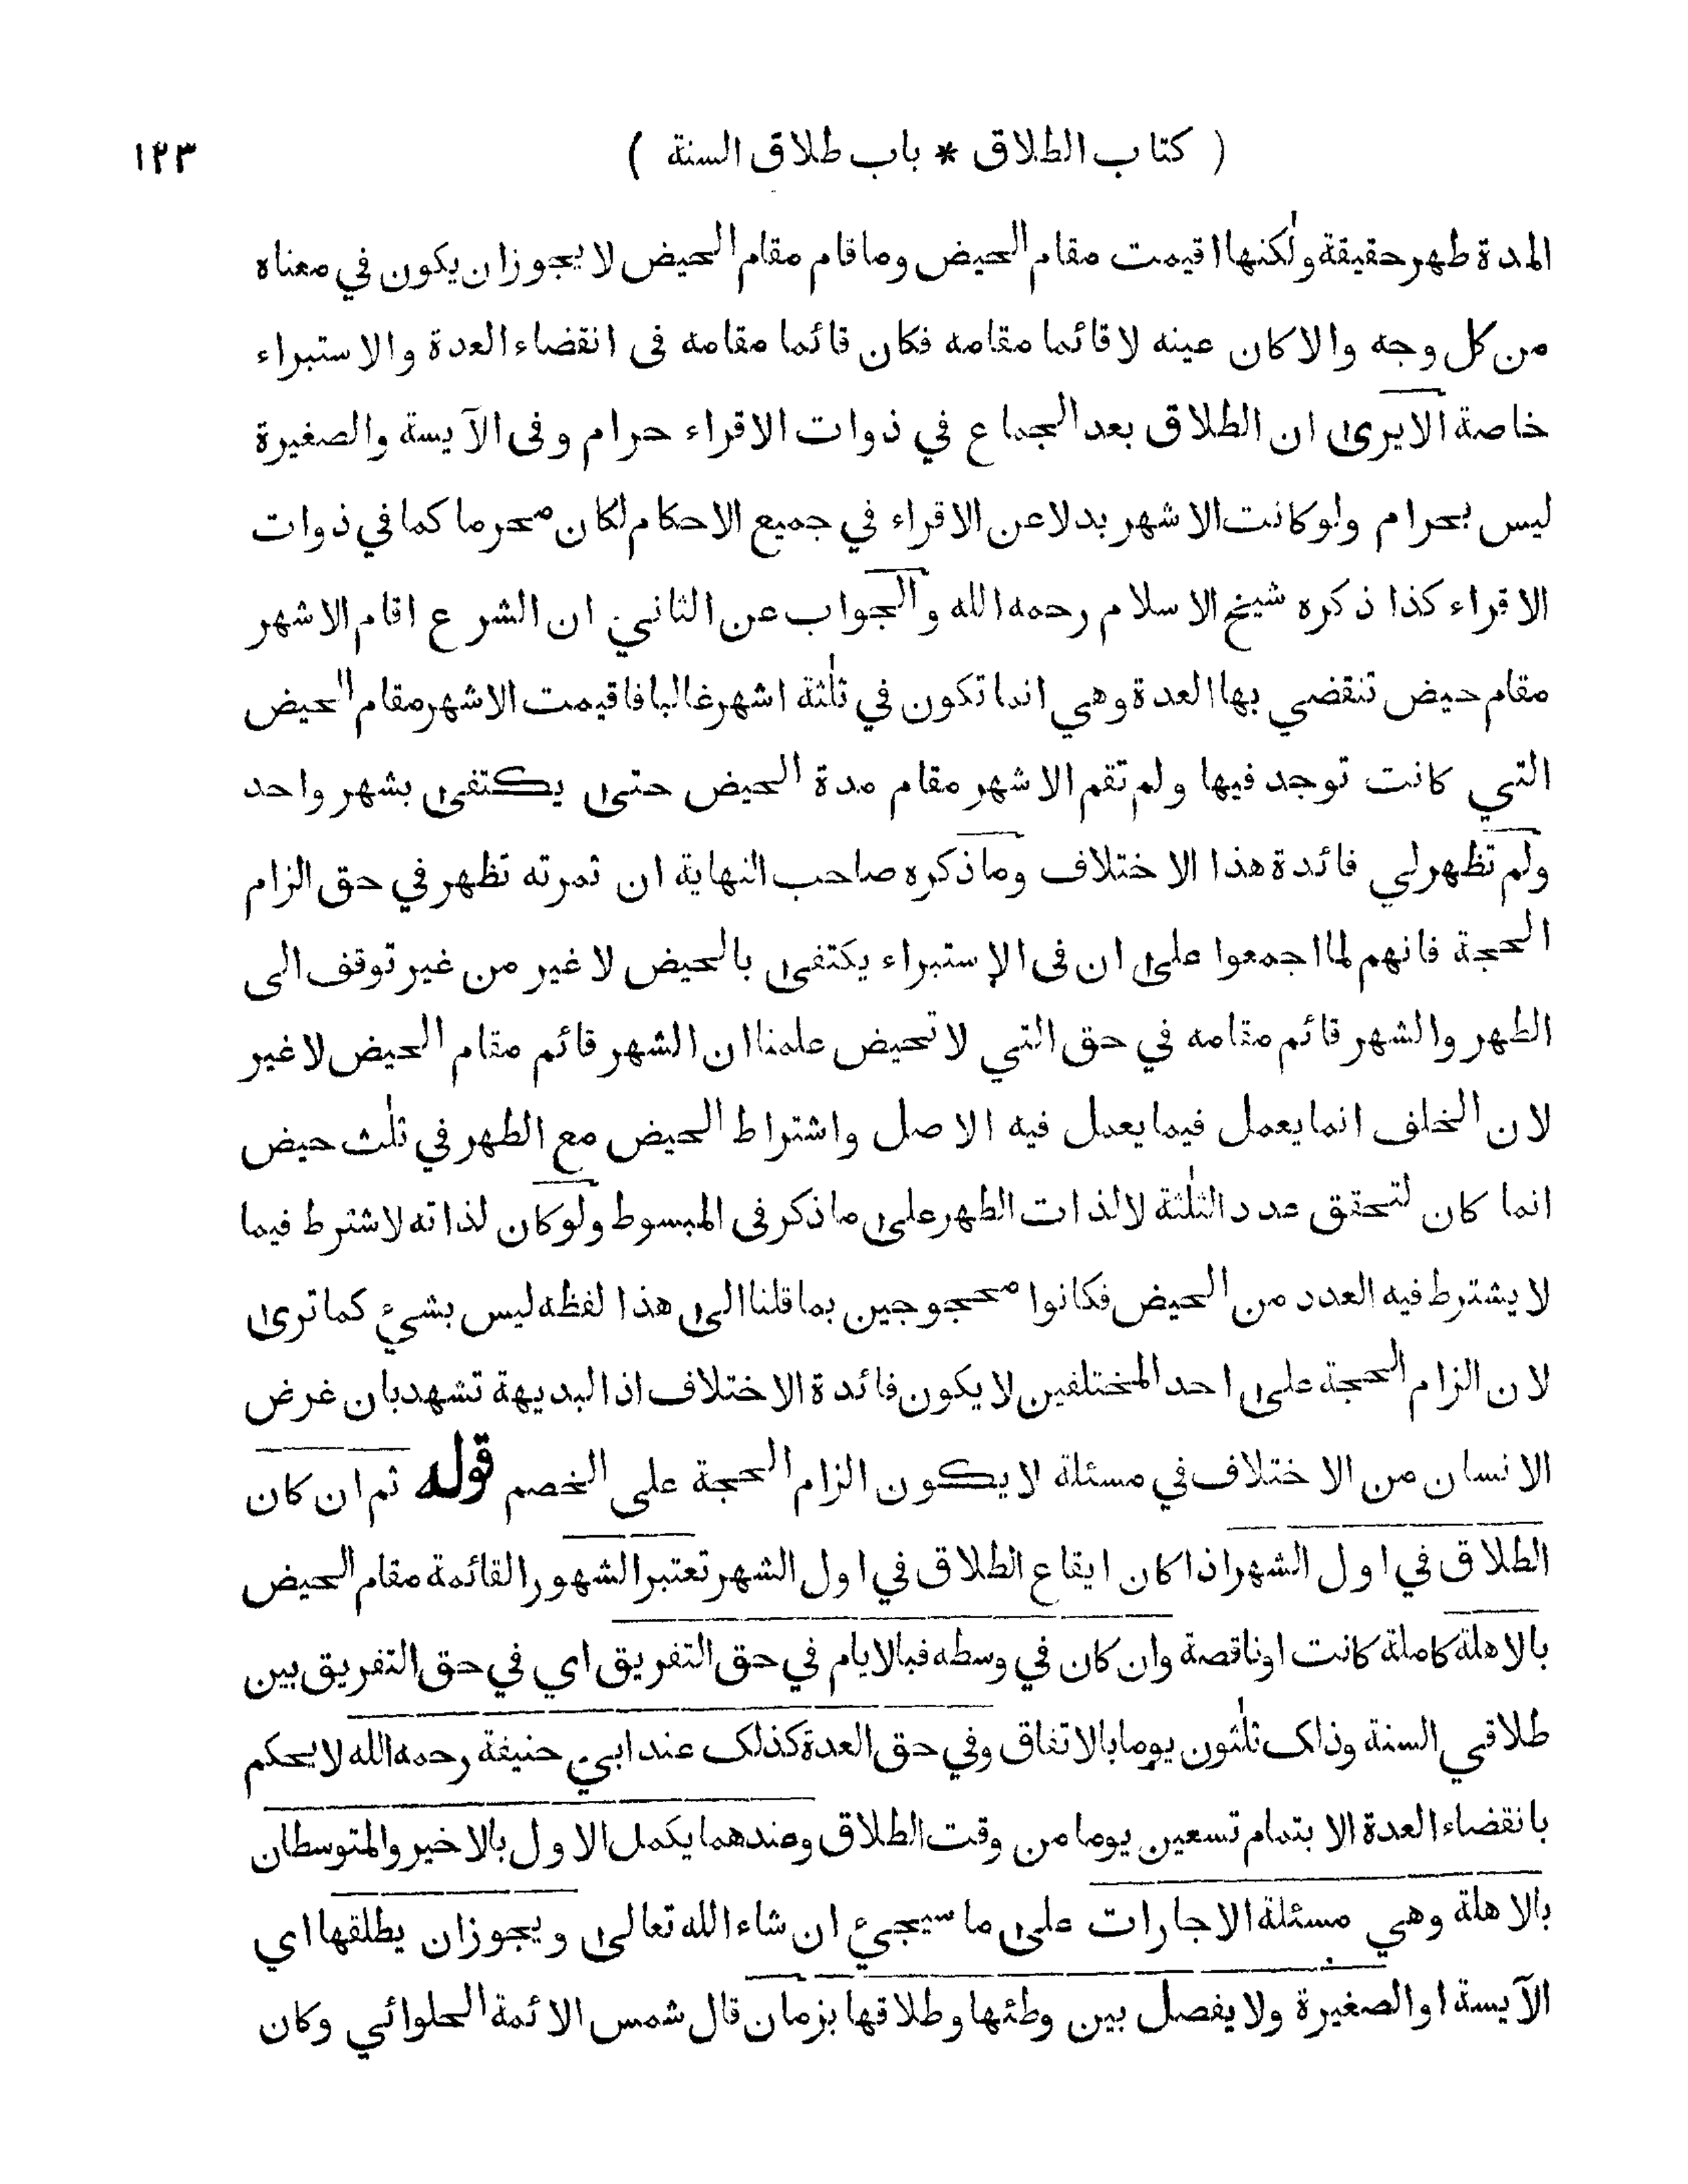 ( كتاب الطلاق * باب طلاق السنة ) ١٢٣
المدة طهر حقيقة ولٰكنها اقيمت مقام الحيض وما قام مقام الحيض لا يجوز ان يكون في معناه
من كل وجه والا كان عينه لا قائما مقامه فكان قائما مقامه فى انقضاء العدة والاستبراء
خاصة الا يرىٰ ان الطلاق بعد الجماع في ذوات الاقراء حرام وفى الآيسة والصغيرة
ليس بحرام ولو كانت الاشهر بدلا عن الاقراء في جميع الاحكام لكان محرما كما في ذوات
الاقراء كذا ذكره شيخ الاسلام رحمه الله والجواب عن الثاني ان الشرع اقام الاشهر
مقام حيض تنقضي بها العدة وهي انما تكون في ثلٰثة اشهر غالبا فاقيمت الاشهر مقام الحيض
التي كانت توجد فيها ولم تقم الاشهر مقام مدة الحيض حتىٰ يكتفىٰ بشهر واحد
ولم تظهر لي فائدة هذا الاختلاف وما ذكره صاحب النهاية ان ثمرته تظهر في حق الزام
الحجة فانهم لما اجمعوا علىٰ ان فى الإستبراء يكتفىٰ بالحيض لا غير من غير توقف الى
الطهر والشهر قائم مقامه في حق التي لا تحيض علمنا ان الشهر قائم مقام الحيض لا غير
لان الخلف انما يعمل فيما يعمل فيه الاصل واشتراط الحيض مع الطهر في ثلٰث حيض
انما كان لتحقق عدد الثلٰثة لا لذات الطهر علىٰ ما ذكر فى المبسوط ولو كان لذاته لاشترط فيما
لا يشترط فيه العدد من الحيض فكانوا محجوجين بما قلنا الىٰ هذا لفظه ليس بشيء كما ترىٰ
لان الزام الحجة علىٰ احد المختلفين لا يكون فائدة الاختلاف اذ البديهة تشهد بان غرض
الانسان من الاختلاف في مسئلة لا يكون الزام الحجة على الخصم قوله ثم ان كان
الطلاق في اول الشهر اذا كان ايقاع الطلاق في اول الشهر تعتبر الشهور القائمة مقام الحيض
بالاهلة كاملة كانت او ناقصة وان كان في وسطه فبالايام في حق التفريق اي في حق التفريق بين
طلاقي السنة وذلك ثلٰثون يوما بالاتفاق وفي حق العدة كذلك عند ابي حنيفة رحمه الله لا يحكم
بانقضاء العدة الا بتمام تسعين يوما من وقت الطلاق وعندهما يكمل الاول بالاخير والمتوسطان
بالاهلة وهي مسئلة الاجارات علىٰ ما سيجيٴ ان شاء الله تعالىٰ ويجوز ان يطلقها اي
الآيسة او الصغيرة ولا يفصل بين وطئها وطلاقها بزمان قال شمس الائمة الحلوائي وكان